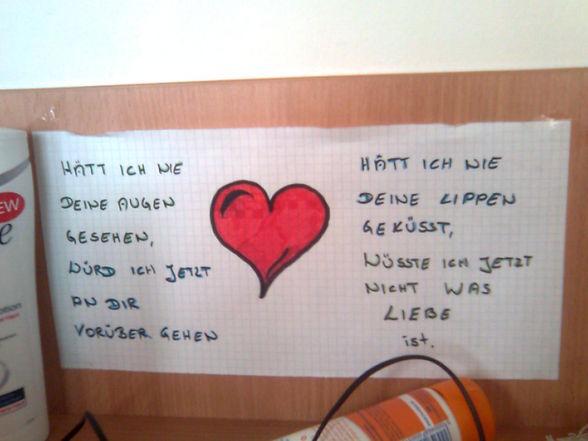 HÄTT ICH NIE
DEINE AUGEN
GESEHEN,
WÜRD ICH JETZT
AN DIR
VORÜBER GEHEN
HÄTT ICH NIE
DEINE LIPPEN
GEKÜSST,
WÜSSTE ICH JETZT
NICHT WAS
LIEBE
ist.